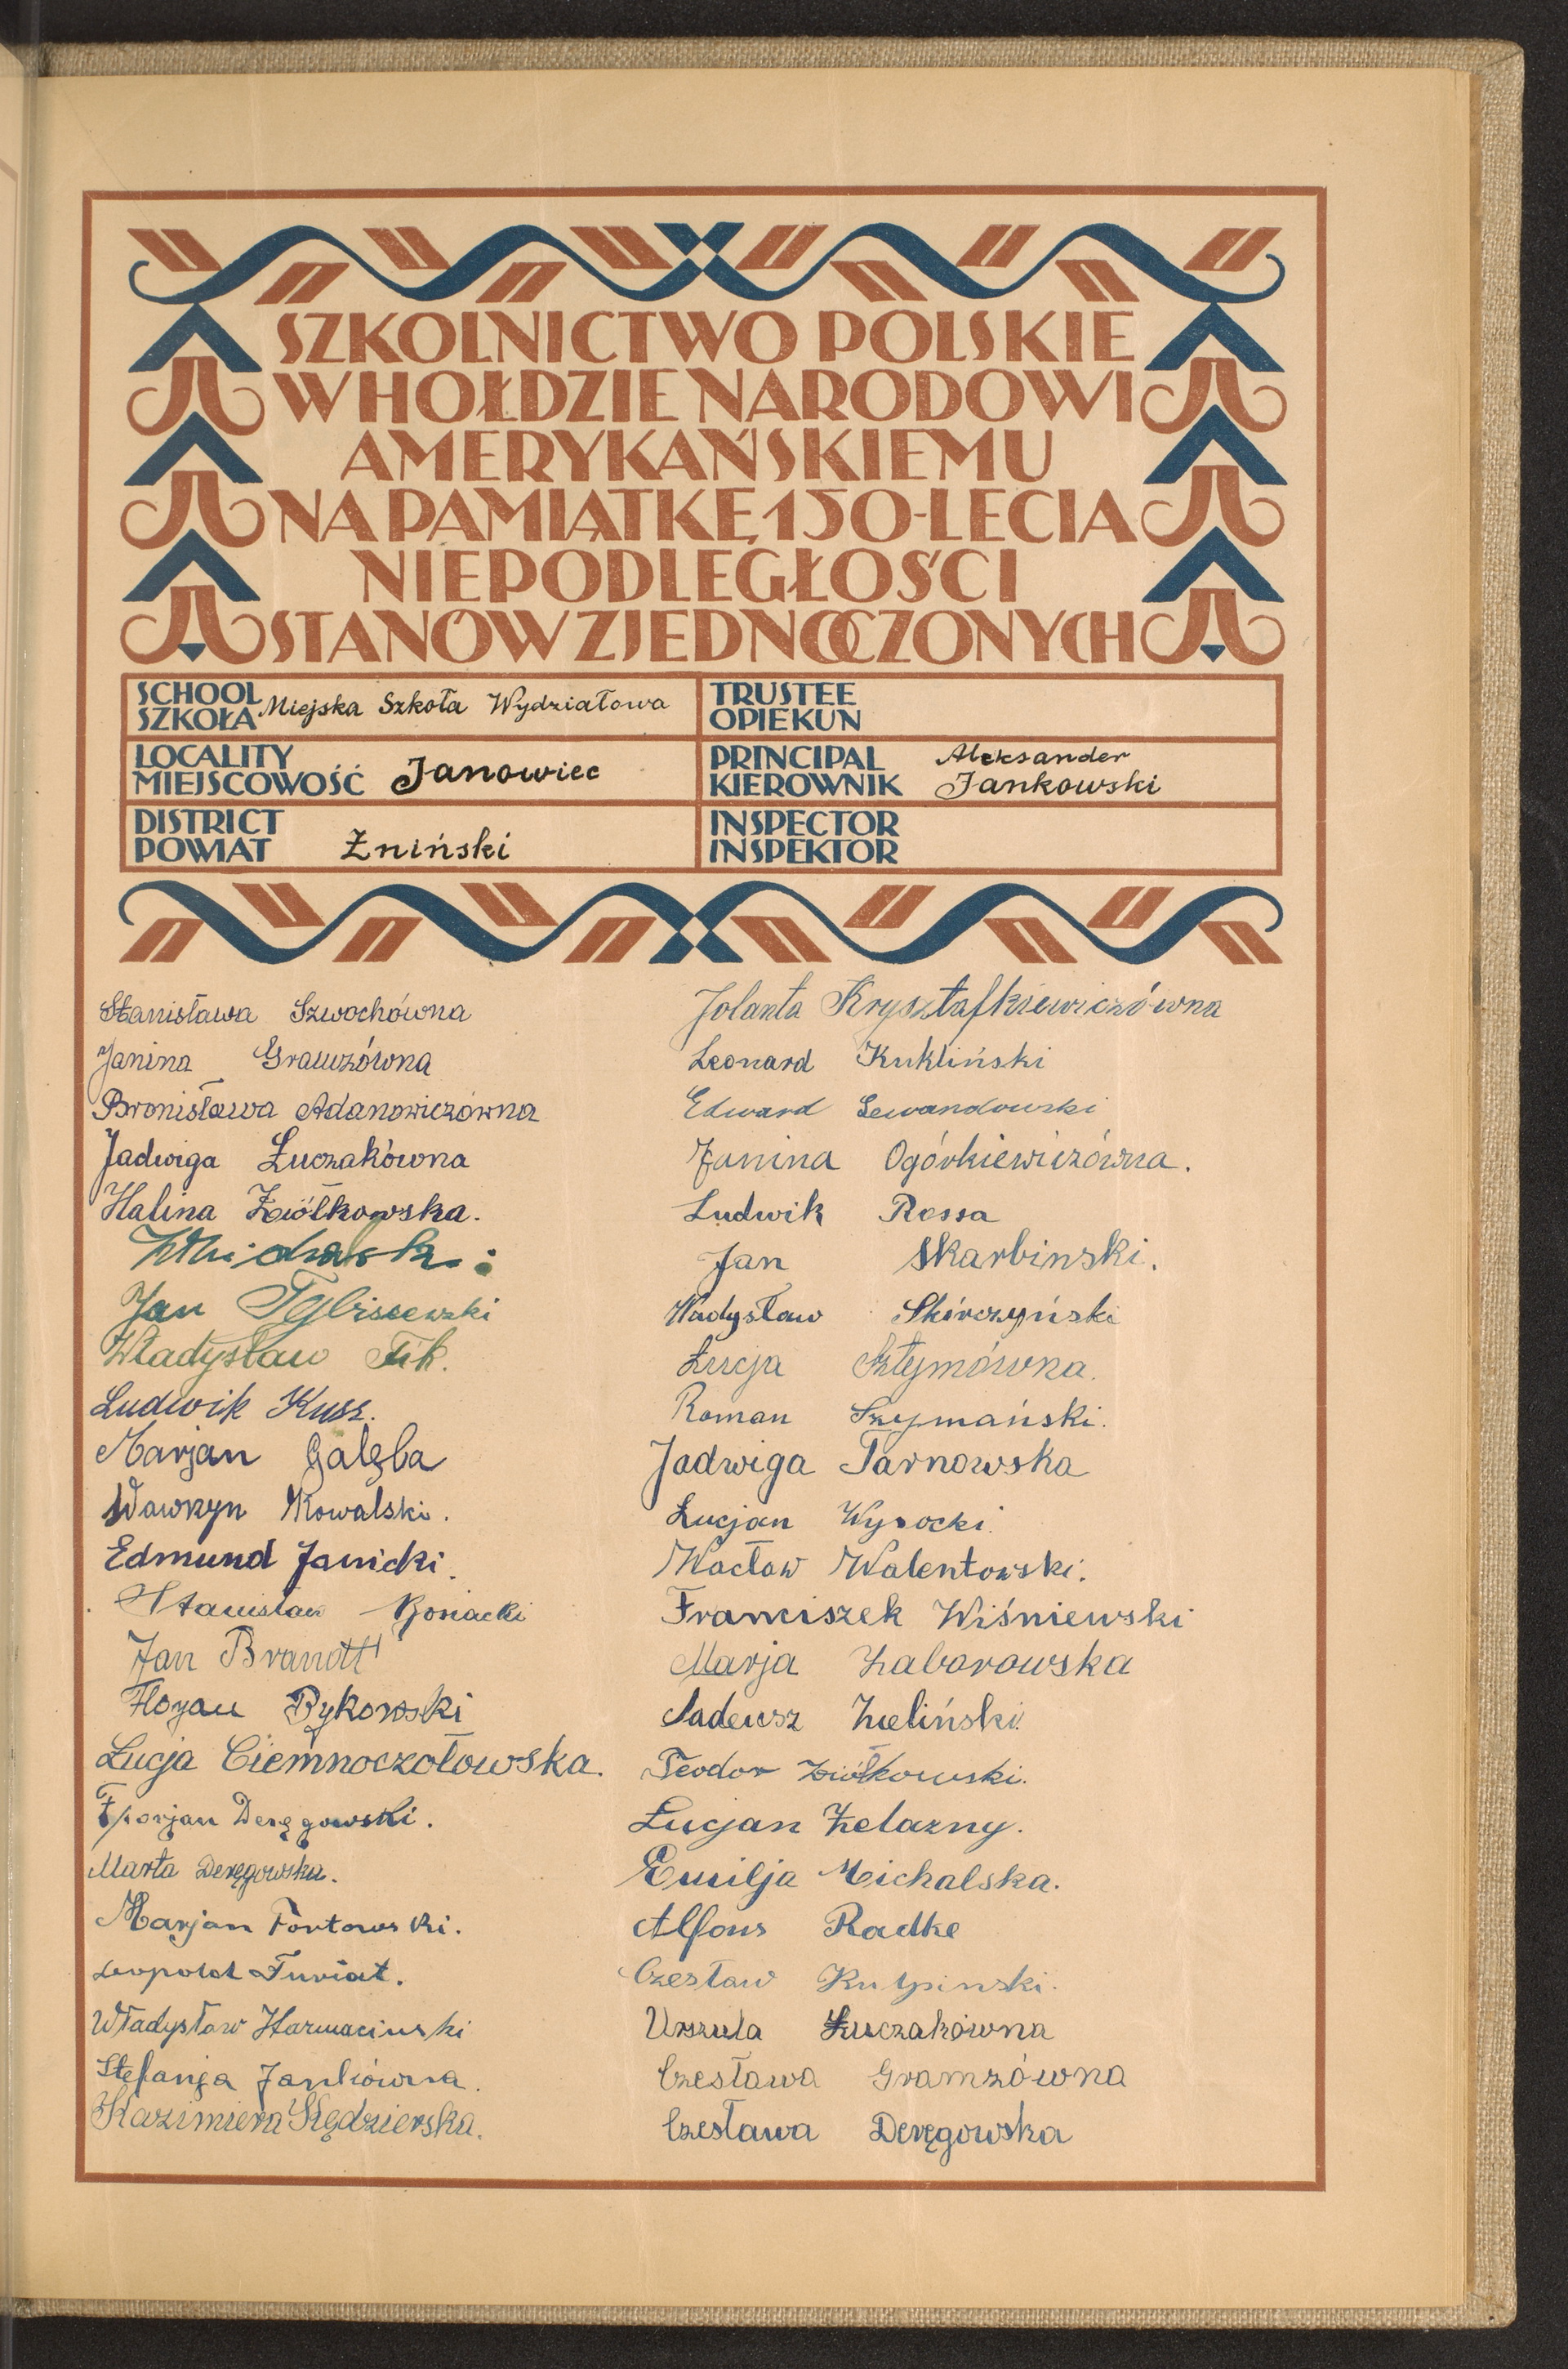 SZKOLNICTWO POLSKIE
W HOŁDZIE NARODOWI
AMERYKAŃSKIEMU
NA PAMIĄTKĘ 150-LECIA
NIEPODLEGŁOŚCI
STANÓW ZJEDNOCZONYCH
SCHOOL
SZKOŁA Miejska Szkoła Wydziałowa
TRUSTEE
OPIEKUN
LOCALITY
MIEJSCOWOŚĆ Janowiec
PRINCIPAL Aleksander
KIEROWNIK Jankowski
DISTRICT
POWIAT Żniński
INSPECTOR
INSPEKTOR
Stanisława Szwochówna
Janina Gramzówna
Bronisława Adamowiczówna
Jadwiga Łuczakówna
Halina Ziółkowska.
Jan Tybiszewski
Władysław Fik.
Ludwik Kusz.
Marjan Galęba
Wawrzyn Kowalski.
Edmund Janicki.
Stanisław
Jan Brandtt
Florjan Bykowski
Łucja Ciemnoczołowska.
Florjan Deręgowski.
Marta Deręgowska.
Marjan Fortowski.
Leopold Furiat.
Władysław Harmaciński
Stefanja Jankówna.
Kazimiera Kędzierska.
Jolanta Kryształkiewiczówna
Leonard Kukliński
Edward Lewandowski
Janina Ogórkiewiczówna.
Ludwik Rossa
Jan Skarbinski.
Władysław Skórczyński
Łucja Sztymówna.
Roman Szymański.
Jadwiga Tarnowska
Lucjan Wysocki.
Wacław Walentowski.
Franciszek Wiśniewski
Marja Zaborowska
Tadeusz Zieliński
Teodor Ziółkowski.
Łucjan Żelazny.
Emilja Michalska.
Alfons Radke
Czesław Kulpinski.
Urszula Łuczakówna
Czesława Gramzówna
Czesława Deręgowska